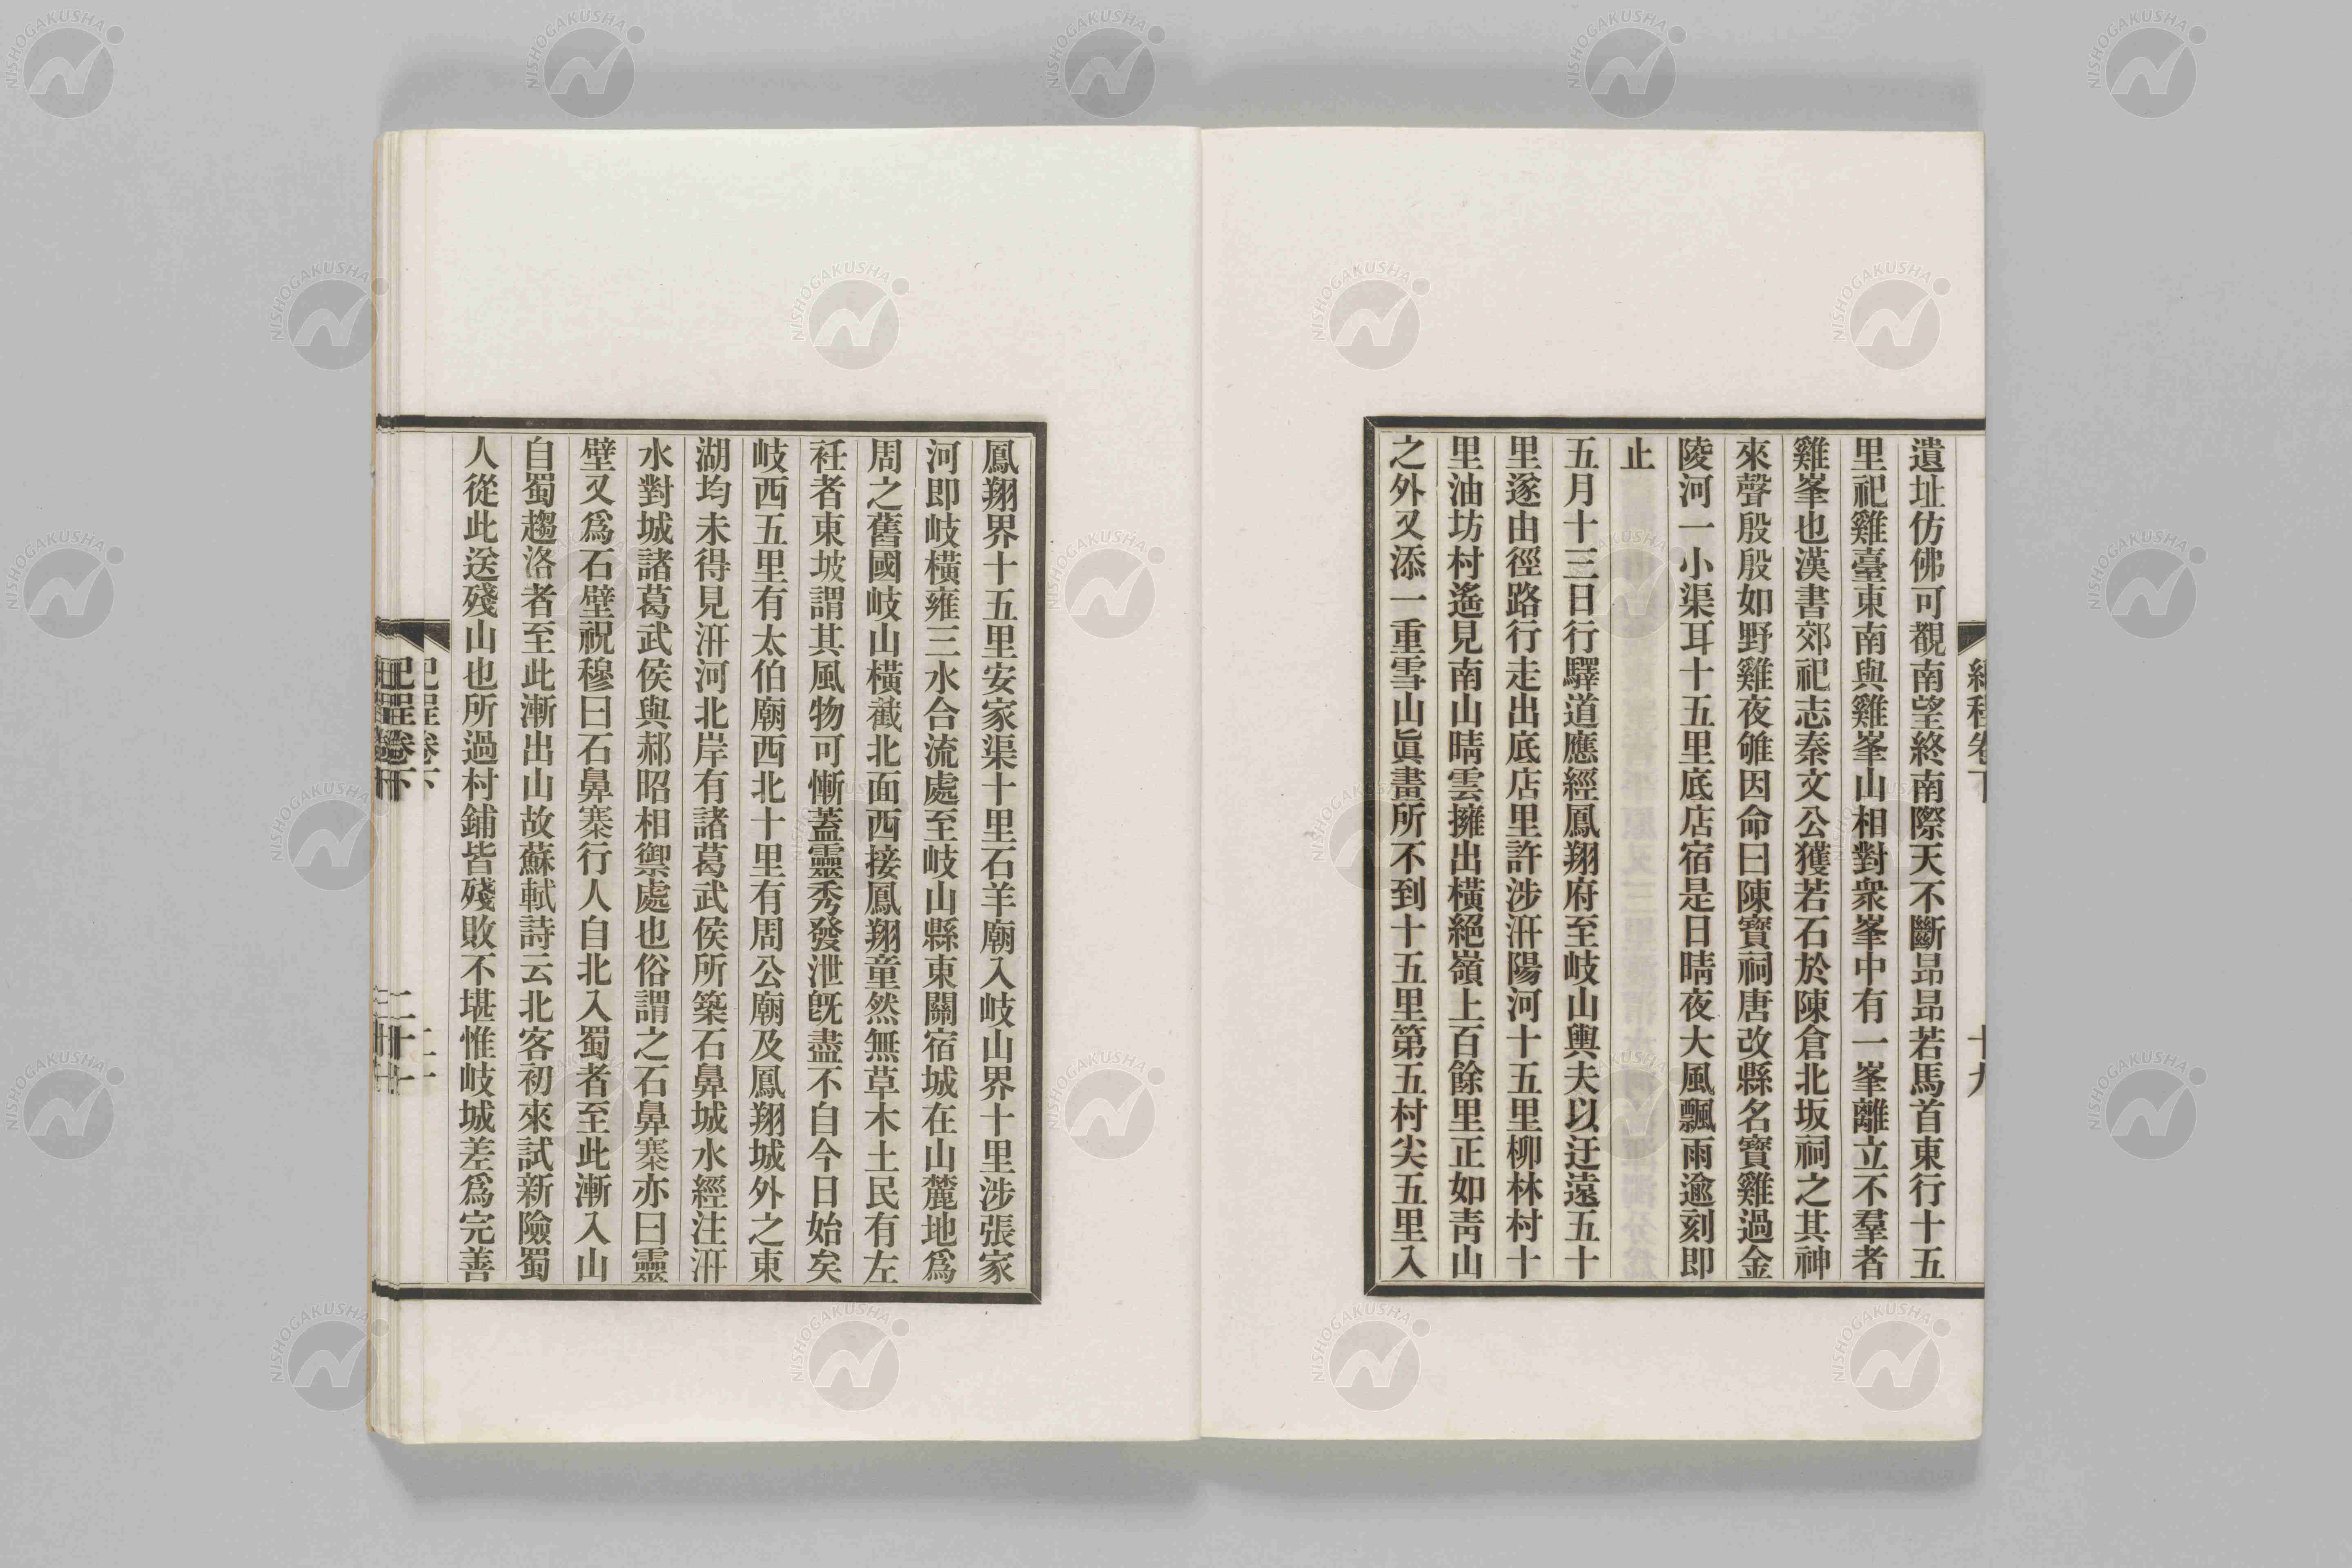 遺址仿佛可覩南望終南際天不斷昻昻若馬首東行十五
里祀雞臺東南與雞峯山相對衆峯中有一峯離立不羣者
雞峯也漢書郊祀志秦文公獲若石於陳倉北坂祠之其神
來聲殷殷如野雞夜雊因命曰陳寶祠唐改縣名寶雞過金
陵河一小渠耳十五里底店宿是日晴夜大風飄雨逾刻即
止
五月十三日行驛道應經鳳翔府至岐山輿夫以迂遠五十
里遂由徑路行走出底店里許涉汧陽河十五里柳林村十
里油坊村遙見南山晴雲擁出橫絕嶺上百餘里正如靑山
之外又添一重雪山眞畫所不到十五里第五村尖五里入
鳳翔界十五里安家渠十里石羊廟入岐山界十里涉張家
河即岐橫雍三水合流處至岐山縣東關宿城在山麓地爲
周之舊國岐山橫截北面西接鳳翔童然無草木土民有左
衽者東坡謂其風物可慚蓋靈秀發泄旣盡不自今日始矣
岐西五里有太伯廟西北十里有周公廟及鳳翔城外之東
湖均未得見汧河北岸有諸葛武侯所築石鼻城水經注汧
水對城諸葛武侯與郝昭相禦處也俗謂之石鼻寨亦曰靈
壁又爲石壁祝穆曰石鼻寨行人自北入蜀者至此漸入山
自蜀趨洛者至此漸出山故蘇軾詩云北客初來試新險蜀
人從此送殘山也所過村鋪皆殘敗不堪惟岐城差爲完善
NISHOGAKUSHA